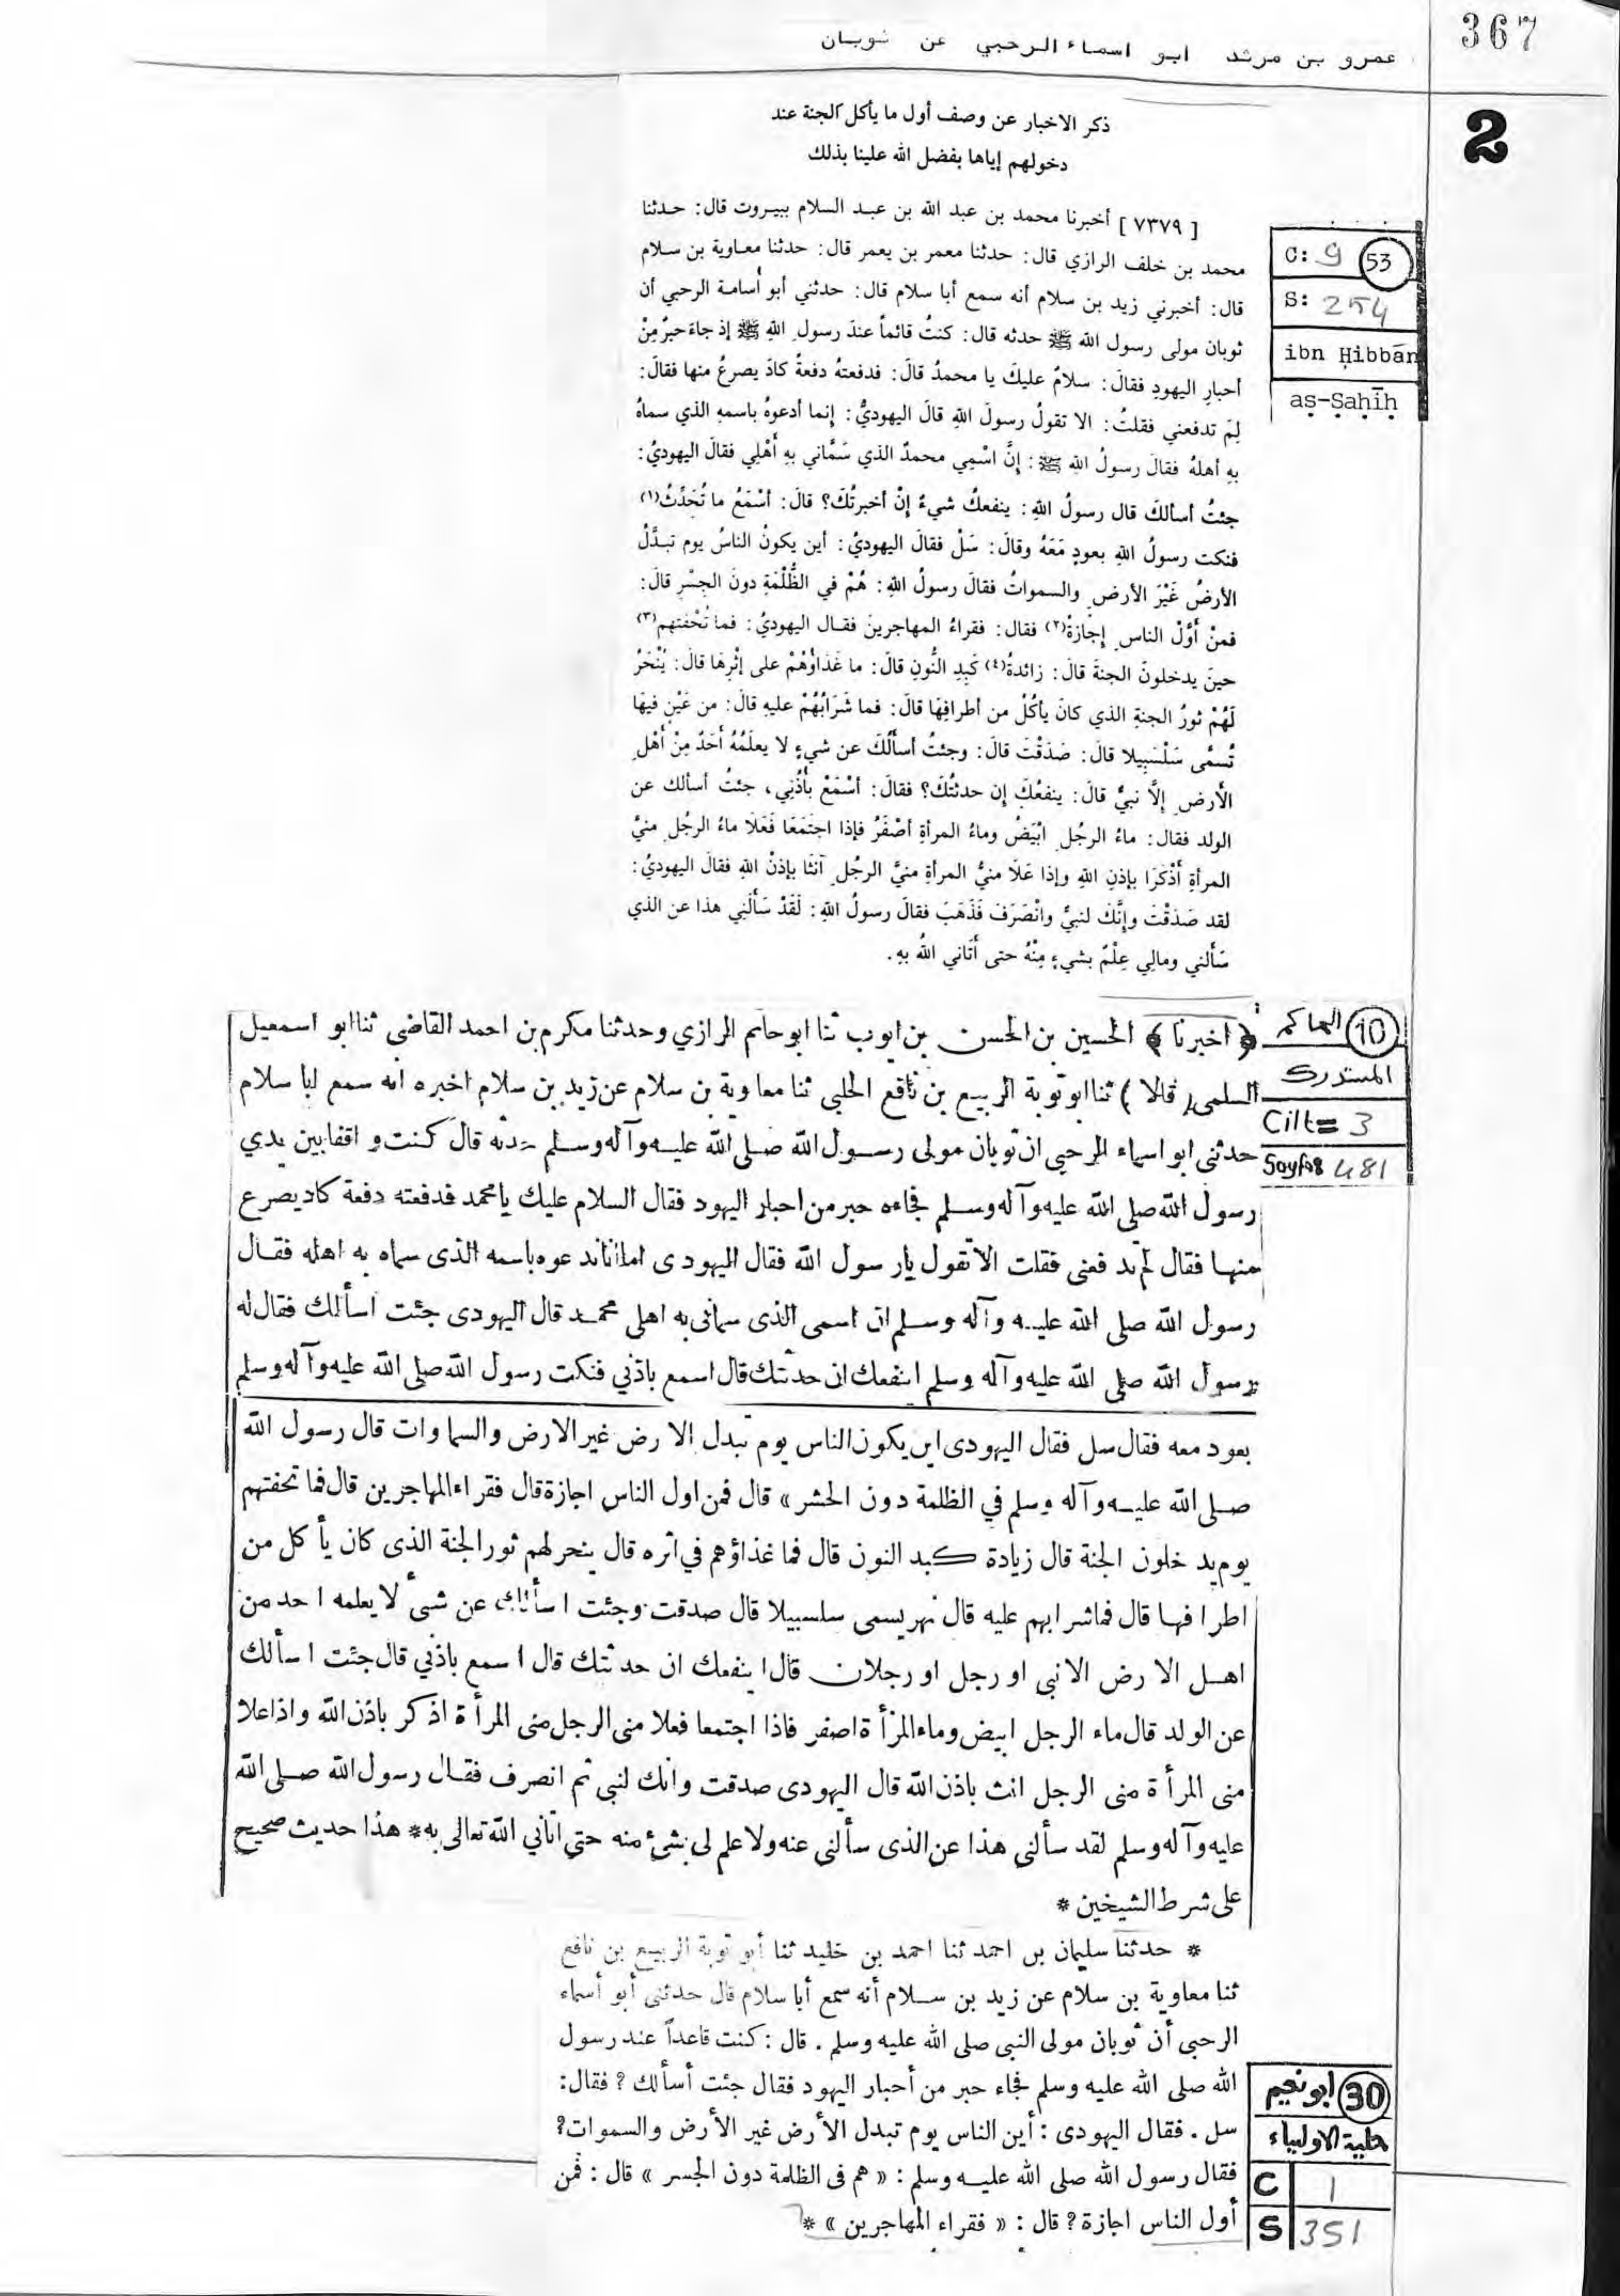 367
عمرو بن مرثد ابو اسماء الرحبي عن ثوبان
2
ذكر الاخبار عن وصف أول ما يأكل الجنة عند
دخولهم إياها بفضل الله علينا بذلك
C: 9 53
S: 254
ibn Ḥibbān
aṣ-Ṣaḥīḥ
[ ٧٣٧٩ ] أخبرنا محمد بن عبد الله بن عبد السلام ببيروت قال: حدثنا
محمد بن خلف الرازي قال: حدثنا معمر بن يعمر قال: حدثنا معاوية بن سلام
قال: أخبرني زيد بن سلام أنه سمع أبا سلام قال: حدثني أبو أسامة الرحبي أن
ثوبان مولى رسول الله ﷺ حدثه قال: كنتُ قائماً عندَ رسولِ اللهِ ﷺ إذ جاءَ حبرٌ مِنْ
أحبارِ اليهودِ فقالَ: سلامٌ عليكَ يا محمدُ قالَ: فدفعتهُ دفعةً كادَ يصرعُ منها فقالَ:
لِمَ تدفعني فقلتُ: الا تقولُ رسولَ اللهِ قالَ اليهوديُّ: إنما أدعوهُ باسمهِ الذي سماهُ
بهِ أهلهُ فقالَ رسولُ اللهِ ﷺ: إنَّ اسْمِي محمدٌ الذي سَمَّاني بهِ أَهْلِي فقالَ اليهوديُ:
جئتُ أسألكَ قال رسولُ اللهِ: ينفعكُ شيءٌ إنْ أخبرتُكَ؟ قالَ: أسْمَعُ ما تُحَدِّثُ(١)
فنكت رسولُ اللهِ بعودٍ مَعَهُ وقالَ: سَلْ فقالَ اليهوديُ: أين يكونُ الناسُ يوم تبدَّلُ
الأرضُ غَيْرَ الأرضِ والسمواتُ فقالَ رسولُ اللهِ: هُمْ في الظُّلْمَةِ دونَ الجِسْرِ قالَ:
فمنْ أوَّلُ الناسِ إجَازةً(٢) فقال: فقراءُ المهاجرينَ فقال اليهوديُ: فما تُحْفتهم(٣)
حينَ يدخلونَ الجنةَ قالَ: زائدةُ(٤) كَبِدِ النُّونِ قالَ: ما غَذاؤهُمْ على إثْرِهَا قالَ: يُنْحَرُ
لَهُمْ ثورُ الجنةِ الذي كانَ يأكُلُ من أطرافِهَا قالَ: فما شَرَابُهُمْ عليهِ قالَ: من عَيْنٍ فيهَا
تُسمَّى سَلْسَبِيلا قالَ: صَدَقْتَ قالَ: وجئتُ أسألُكَ عن شيءٍ لا يعلَمُهُ أحَدٌ مِنْ أهْلِ
الأرضِ إلَّا نبيٌّ قالَ: ينفعُكَ إن حدثتُكَ؟ فقالَ: أسْمَعُ بأُذُنِي، جئتُ أسألك عن
الولد فقال: ماءُ الرجُلِ ابْيَضُ وماءُ المرأةِ أصْفَرُ فإذا اجتَمَعَا فَعَلَا ماءُ الرجُلِ منيَّ
المرأةِ أَذْكَرَا بإذنِ اللهِ وإذا عَلَا منيُّ المرأةِ منيَّ الرجُلِ آنثَا بإذنْ اللهِ فقالَ اليهوديُ:
لقد صَدَقْتَ وإنَّكَ لنبيٌّ وانْصَرَفَ فَذَهَبَ فقالَ رسولُ اللهِ: لَقَدْ سَألَنِي هذا عن الذي
سَألني ومالي عِلْمٌ بشيءٍ مِنْهُ حتى أَتَاني اللهُ بهِ.
10 الحاكم
المستدرك
Cilt= 3
Sayfa= 481
﴿ اخبرنا ﴾ الحسين بن الحسن بن ايوب ثنا ابو حاتم الرازي وحدثنا مكرم بن احمد القاضي ثنا ابو اسمعيل
السلمى ( قالا ) ثنا ابو توبة الربيع بن نافع الحلبى ثنا معاوية بن سلام عن زيد بن سلام اخبره انه سمع ابا سلام
حدثنى ابو اسماء الرحبى ان ثوبان مولى رسول الله صلى الله عليه وآله وسلم حدثه قال كنت واقفا بين يدي
رسول الله صلى الله عليه وآله وسلم فجاءه حبر من احبار اليهود فقال السلام عليك يا محمد فدفعته دفعة كاد يصرع
منها فقال لم تدفعنى فقلت الا تقول يا رسول الله فقال اليهودى اما انا ندعوه باسمه الذى سماه به اهله فقال
رسول الله صلى الله عليه وآله وسلم ان اسمى الذى سمانى به اهلى محمد قال اليهودى جئت اسألك فقال له
رسول الله صلى الله عليه وآله وسلم اينفعك ان حدثتك قال اسمع باذنى فنكت رسول الله صلى الله عليه وآله وسلم
بعود معه فقال سل فقال اليهودى اين يكون الناس يوم تبدل الارض غير الارض والسماوات قال رسول الله
صلى الله عليه وآله وسلم في الظلمة دون الحشر » قال فمن اول الناس اجازة قال فقراء المهاجرين قال فما تحفتهم
يوم يدخلون الجنة قال زيادة كبد النون قال فما غذاؤهم في اثره قال ينحر لهم ثور الجنة الذى كان يأكل من
اطرافها قال فما شرابهم عليه قال نهر يسمى سلسبيلا قال صدقت وجئت اسألك عن شىء لا يعلمه احد من
اهل الارض الا نبى او رجل او رجلان قال اينفعك ان حدثتك قال اسمع باذني قال جئت اسألك
عن الولد قال ماء الرجل ابيض وماء المرأة اصفر فاذا اجتمعا فعلا منى الرجل منى المرأة اذكر باذن الله واذا علا
منى المرأة منى الرجل انث باذن الله قال اليهودى صدقت وانك لنبى ثم انصرف فقال رسول الله صلى الله
عليه وآله وسلم لقد سألنى هذا عن الذى سألنى عنه ولا علم لى بشئ منه حتى اتاني الله تعالى به* هذا حديث صحيح
على شرط الشيخين *
* حدثنا سليمان بن احمد ثنا احمد بن خليد ثنا أبو توبة الربيع بن نافع
ثنا معاوية بن سلام عن زيد بن سلام أنه سمع أبا سلام قال حدثنى أبو أسماء
الرحبى أن ثوبان مولى النبى صلى الله عليه وسلم . قال : كنت قاعداً عند رسول
الله صلى الله عليه وسلم فجاء حبر من أحبار اليهود فقال جئت أسألك ؟ فقال :
سل . فقال اليهودى : أين الناس يوم تبدل الأرض غير الأرض والسموات ؟
فقال رسول الله صلى الله عليه وسلم : « هم فى الظلمة دون الجسر » قال : فمن
أول الناس اجازة ؟ قال : « فقراء المهاجرين » *
30 ابو نعيم
حلية الاولياء
C 1
S 351